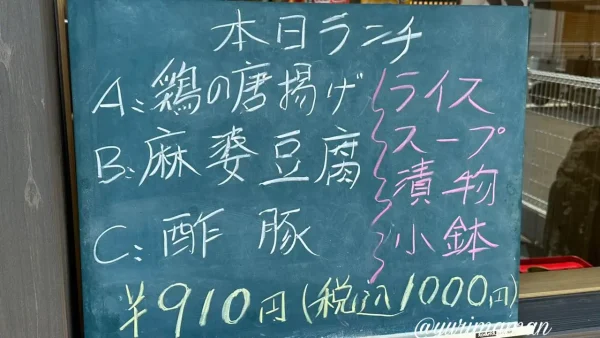 本日ランチ
A:鶏の唐揚げ
B:麻婆豆腐
C:酢豚
ライス
スープ
漬物
小鉢
¥910円(税込1000円)
@yurimaman